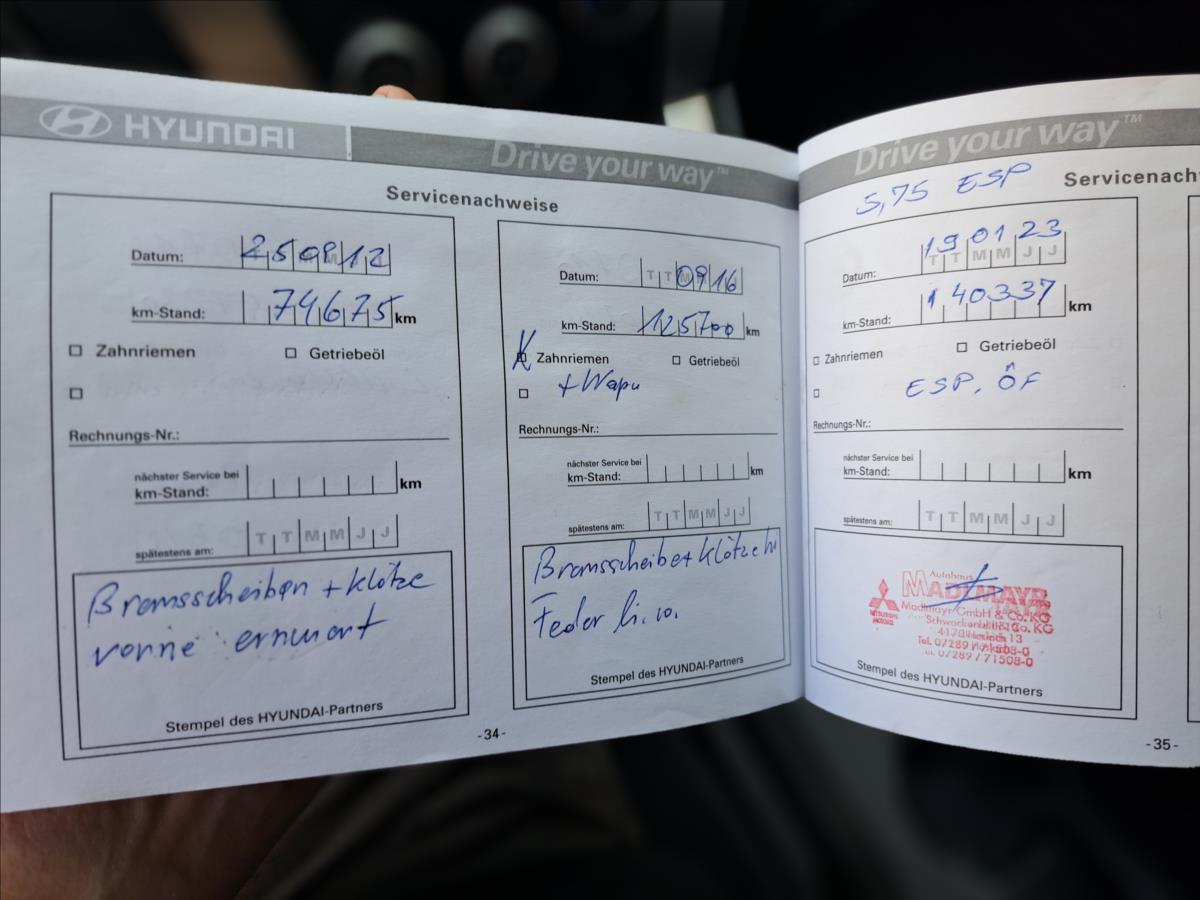 HYUNDAI
Drive your way™
Servicenachweise
Datum: 250812
km-Stand: 74675 km
Zahnriemen Getriebeöl
Rechnungs-Nr.:
nächster Service bei
km-Stand: km
T T M M J J
spätestens am:
Bremsscheiben + Klötze
vorne erneuert
Stempel des HYUNDAI-Partners
Datum: T T 0916
km-Stand: 125700 km
X Zahnriemen Getriebeöl
+ Wapu
Rechnungs-Nr.:
nächster Service bei
km-Stand: km
T T M M J J
spätestens am:
Bremsscheibe + Klötze hi
Feder li. vo.
Stempel des HYUNDAI-Partners
-34-
Drive your way™
5,75 ESP
Servicenach
Datum: 190123
T T M M J J
km-Stand: 140337 km
Zahnriemen Getriebeöl
ESP, ÖF
Rechnungs-Nr.:
nächster Service bei
km-Stand: km
T T M M J J
spätestens am:
Autohaus
MADLMAYR
MITSUBISHI MOTORS
Madlmayr GmbH & Co. KG
Tel. 07289 / 71508-0
07289 / 71508-0
Stempel des HYUNDAI-Partners
-35-